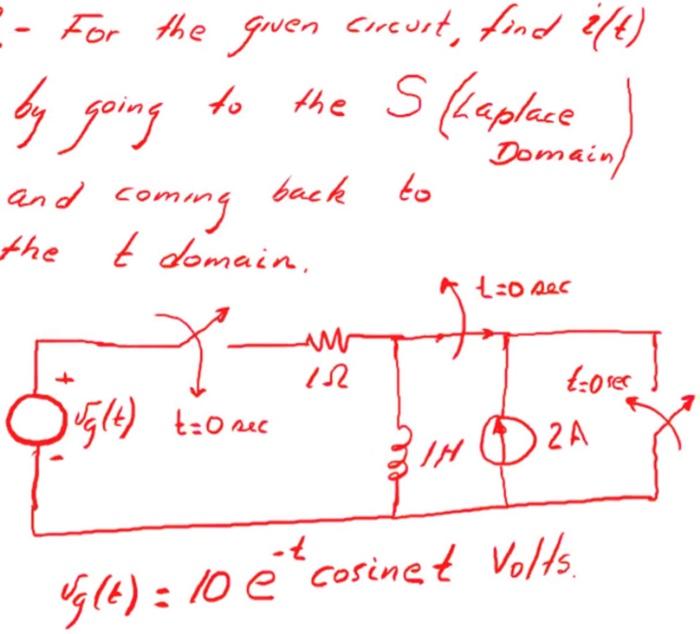 - For the given circuit, find i(t)
by going to the S (Laplace
Domain)
and coming back to
the t domain.
t=0 sec
+
vg(t)
-
t=0 sec
1Ω
1H
2A
t=0 sec
vg(t) = 10 e^-t cosinet Volts.